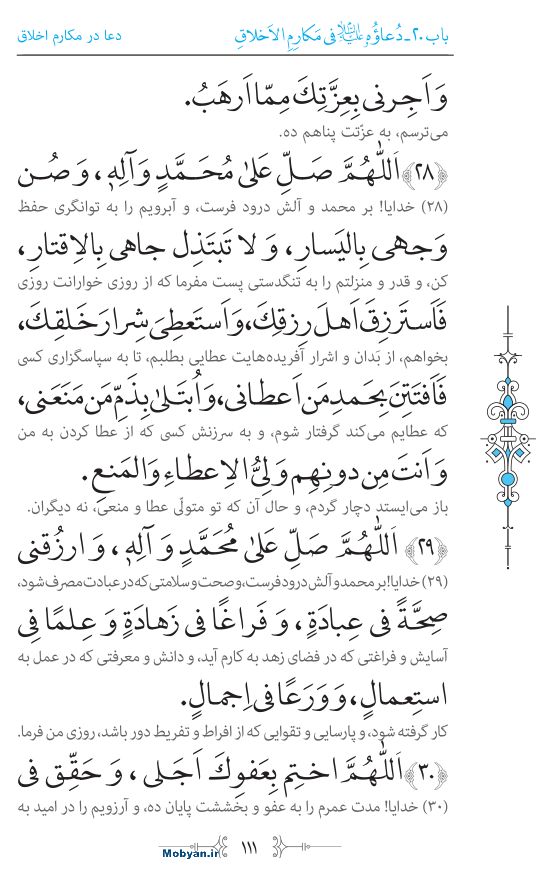 باب ۲۰ـ دُعاؤُه علیه‌السلام فی مَکارِمِ الاَخلاقِ
دعا در مکارم اخلاق
وَ اَجِرنی بِعِزَّتِكَ مِمّا اَرهَبُ.
می‌ترسم، به عزّتت پناهم ده.
﴿۲۸﴾ اَللّٰهُمَّ صَلِّ عَلیٰ مُحَمَّدٍ وَ آلِهٖ، وَ صُن
(۲۸) خدایا! بر محمد و آلش درود فرست، و آبرویم را به توانگری حفظ
وَجهی بِالیَسارِ، وَ لا تَبتَذِل جاهی بِالاِقتارِ،
کن، و قدر و منزلتم را به تنگدستی پست مفرما که از روزی خوارانت روزی
فَاَستَرزِقَ اَهلَ رِزقِكَ، وَ اَستَعطِیَ شِرارَ خَلقِكَ،
بخواهم، از بَدان و اشرار آفریده‌هایت عطایی بطلبم، تا به سپاسگزاری کسی
فَاَفتَتِنَ بِحَمدِ مَن اَعطانی، وَ اُبتَلیٰ بِذَمِّ مَن مَنَعَنی،
که عطایم می‌کند گرفتار شوم، و به سرزنش کسی که از عطا کردن به من
وَ اَنتَ مِن دونِهِم وَلِیُّ الاِعطاءِ وَ المَنعِ.
باز می‌ایستد دچار گردم، و حال آن که تو متولّی عطا و منعی، نه دیگران.
﴿۲۹﴾ اَللّٰهُمَّ صَلِّ عَلیٰ مُحَمَّدٍ وَ آلِهٖ، وَ ارزُقنی
(۲۹) خدایا! بر محمد و آلش درود فرست، و صحت و سلامتی که در عبادت مصرف شود،
صِحَّةً فی عِبادَةٍ، وَ فَراغًا فی زَهادَةٍ وَ عِلمًا فِی
آسایش و فراغتی که در فضای زهد به کارم آید، و دانش و معرفتی که در عمل به
استِعمالٍ، وَ وَرَعًا فی اِجمالٍ.
کار گرفته شود، و پارسایی و تقوایی که از افراط و تفریط دور باشد، روزی من فرما.
﴿۳۰﴾ اَللّٰهُمَّ اختِم بِعَفوِكَ اَجَلی، وَ حَقِّق فی
(۳۰) خدایا! مدت عمرم را به عفو و بخششت پایان ده، و آرزویم را در امید به
۱۱۱
Mobyan.ir